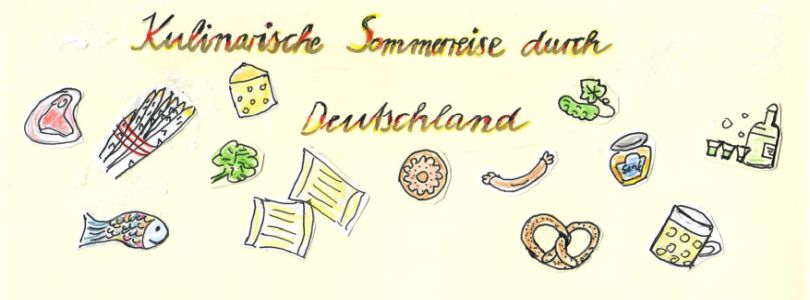 Kulinarische Sommerreise durch
Deutschland
Senf